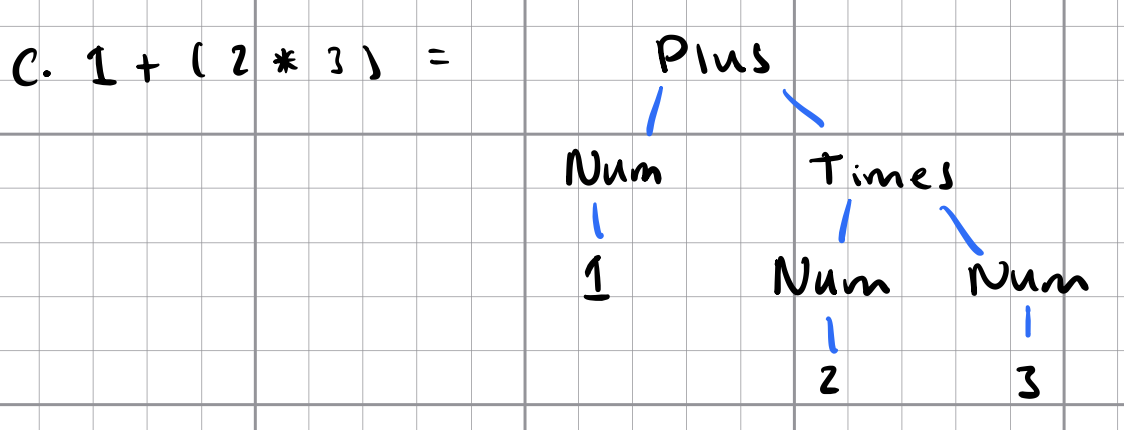 C. 1 + ( 2 * 3 ) = Plus
Num Times
1 Num Num
2 3